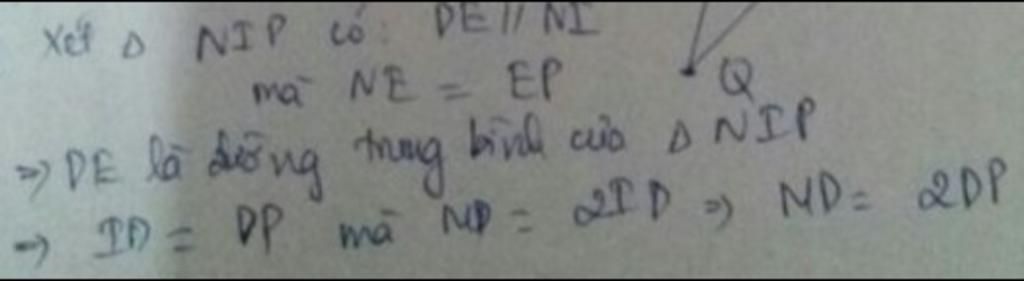 Xét Δ NIP có: DE // NI
mà NE = EP
Q
=> DE là đường trung bình của Δ NIP
=> ID = DP mà MD = 2ID => MD = 2DP